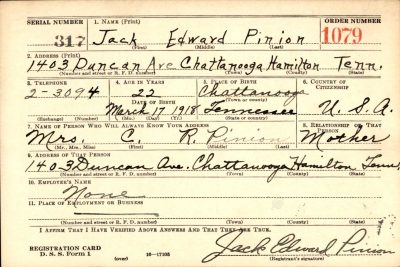 SERIAL NUMBER 1. NAME (Print) ORDER NUMBER
317 Jack Edward Pinion 1079
(First) (Middle) (Last)
2. ADDRESS (Print)
1403 Duncan Ave Chattanooga Hamilton Tenn.
(Number and street or R. F. D. number) (Town) (County) (State)
3. TELEPHONE 4. AGE IN YEARS 5. PLACE OF BIRTH 6. COUNTRY OF CITIZENSHIP
2-3094 22 Chattanooga
DATE OF BIRTH (Town or county)
March 17 1918 Tennessee U. S. A.
(Exchange) (Number) (Mo.) (Day) (Yr.) (State or country)
7. NAME OF PERSON WHO WILL ALWAYS KNOW YOUR ADDRESS 8. RELATIONSHIP OF THAT PERSON
Mrs. C. R. Pinion Mother
(Mr., Mrs., Miss) (First) (Middle) (Last)
9. ADDRESS OF THAT PERSON
1403 Duncan Ave. Chattanooga Hamilton Tenn
(Number and street or R. F. D. number) (Town) (County) (State)
10. EMPLOYER'S NAME
None
11. PLACE OF EMPLOYMENT OR BUSINESS
(Number and street or R. F. D. number) (Town) (County) (State)
I AFFIRM THAT I HAVE VERIFIED ABOVE ANSWERS AND THAT THEY ARE TRUE.
REGISTRATION CARD
D. S. S. Form 1 (over) 16—17105
Jack Edward Pinion
(Registrant's signature)